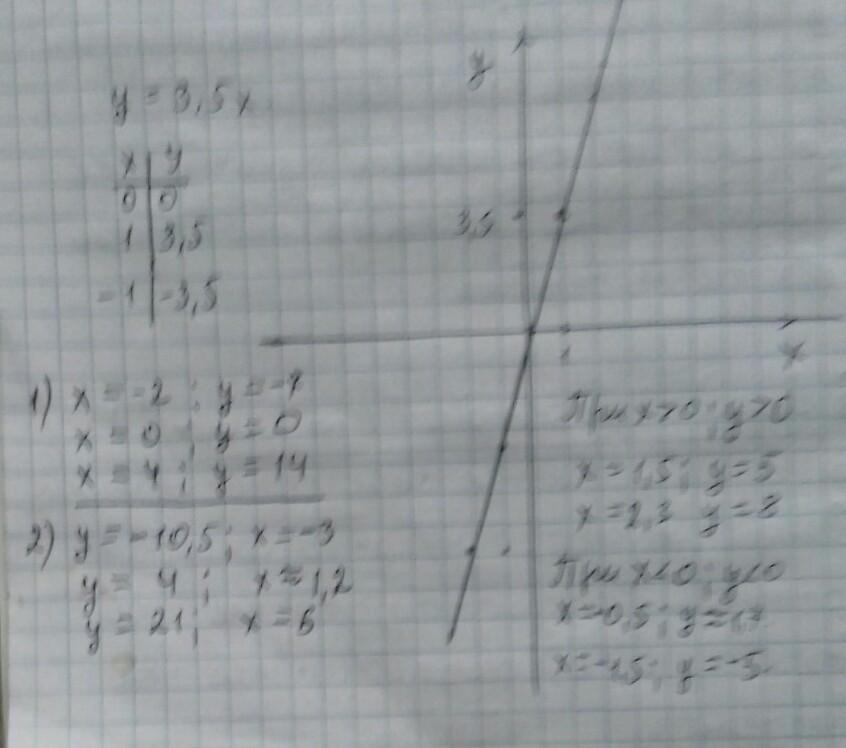 y = 3,5x
x | y
0 | 0
1 | 3,5
-1 | -3,5
y
3,5
1
x
1) x = -2 ; y = -7
x = 0 ; y = 0
x = 4 ; y = 14
2) y = -10,5 ; x = -3
y = 4 ; x ≈ 1,2
y = 21 ; x = 6
При x>0 ; y>0
x = 1,5 ; y = 5
x = 2,3 y = 8
При x<0 ; y<0
x = -0,5 ; y ≈ 1,7
x = -1,5 ; y = -5